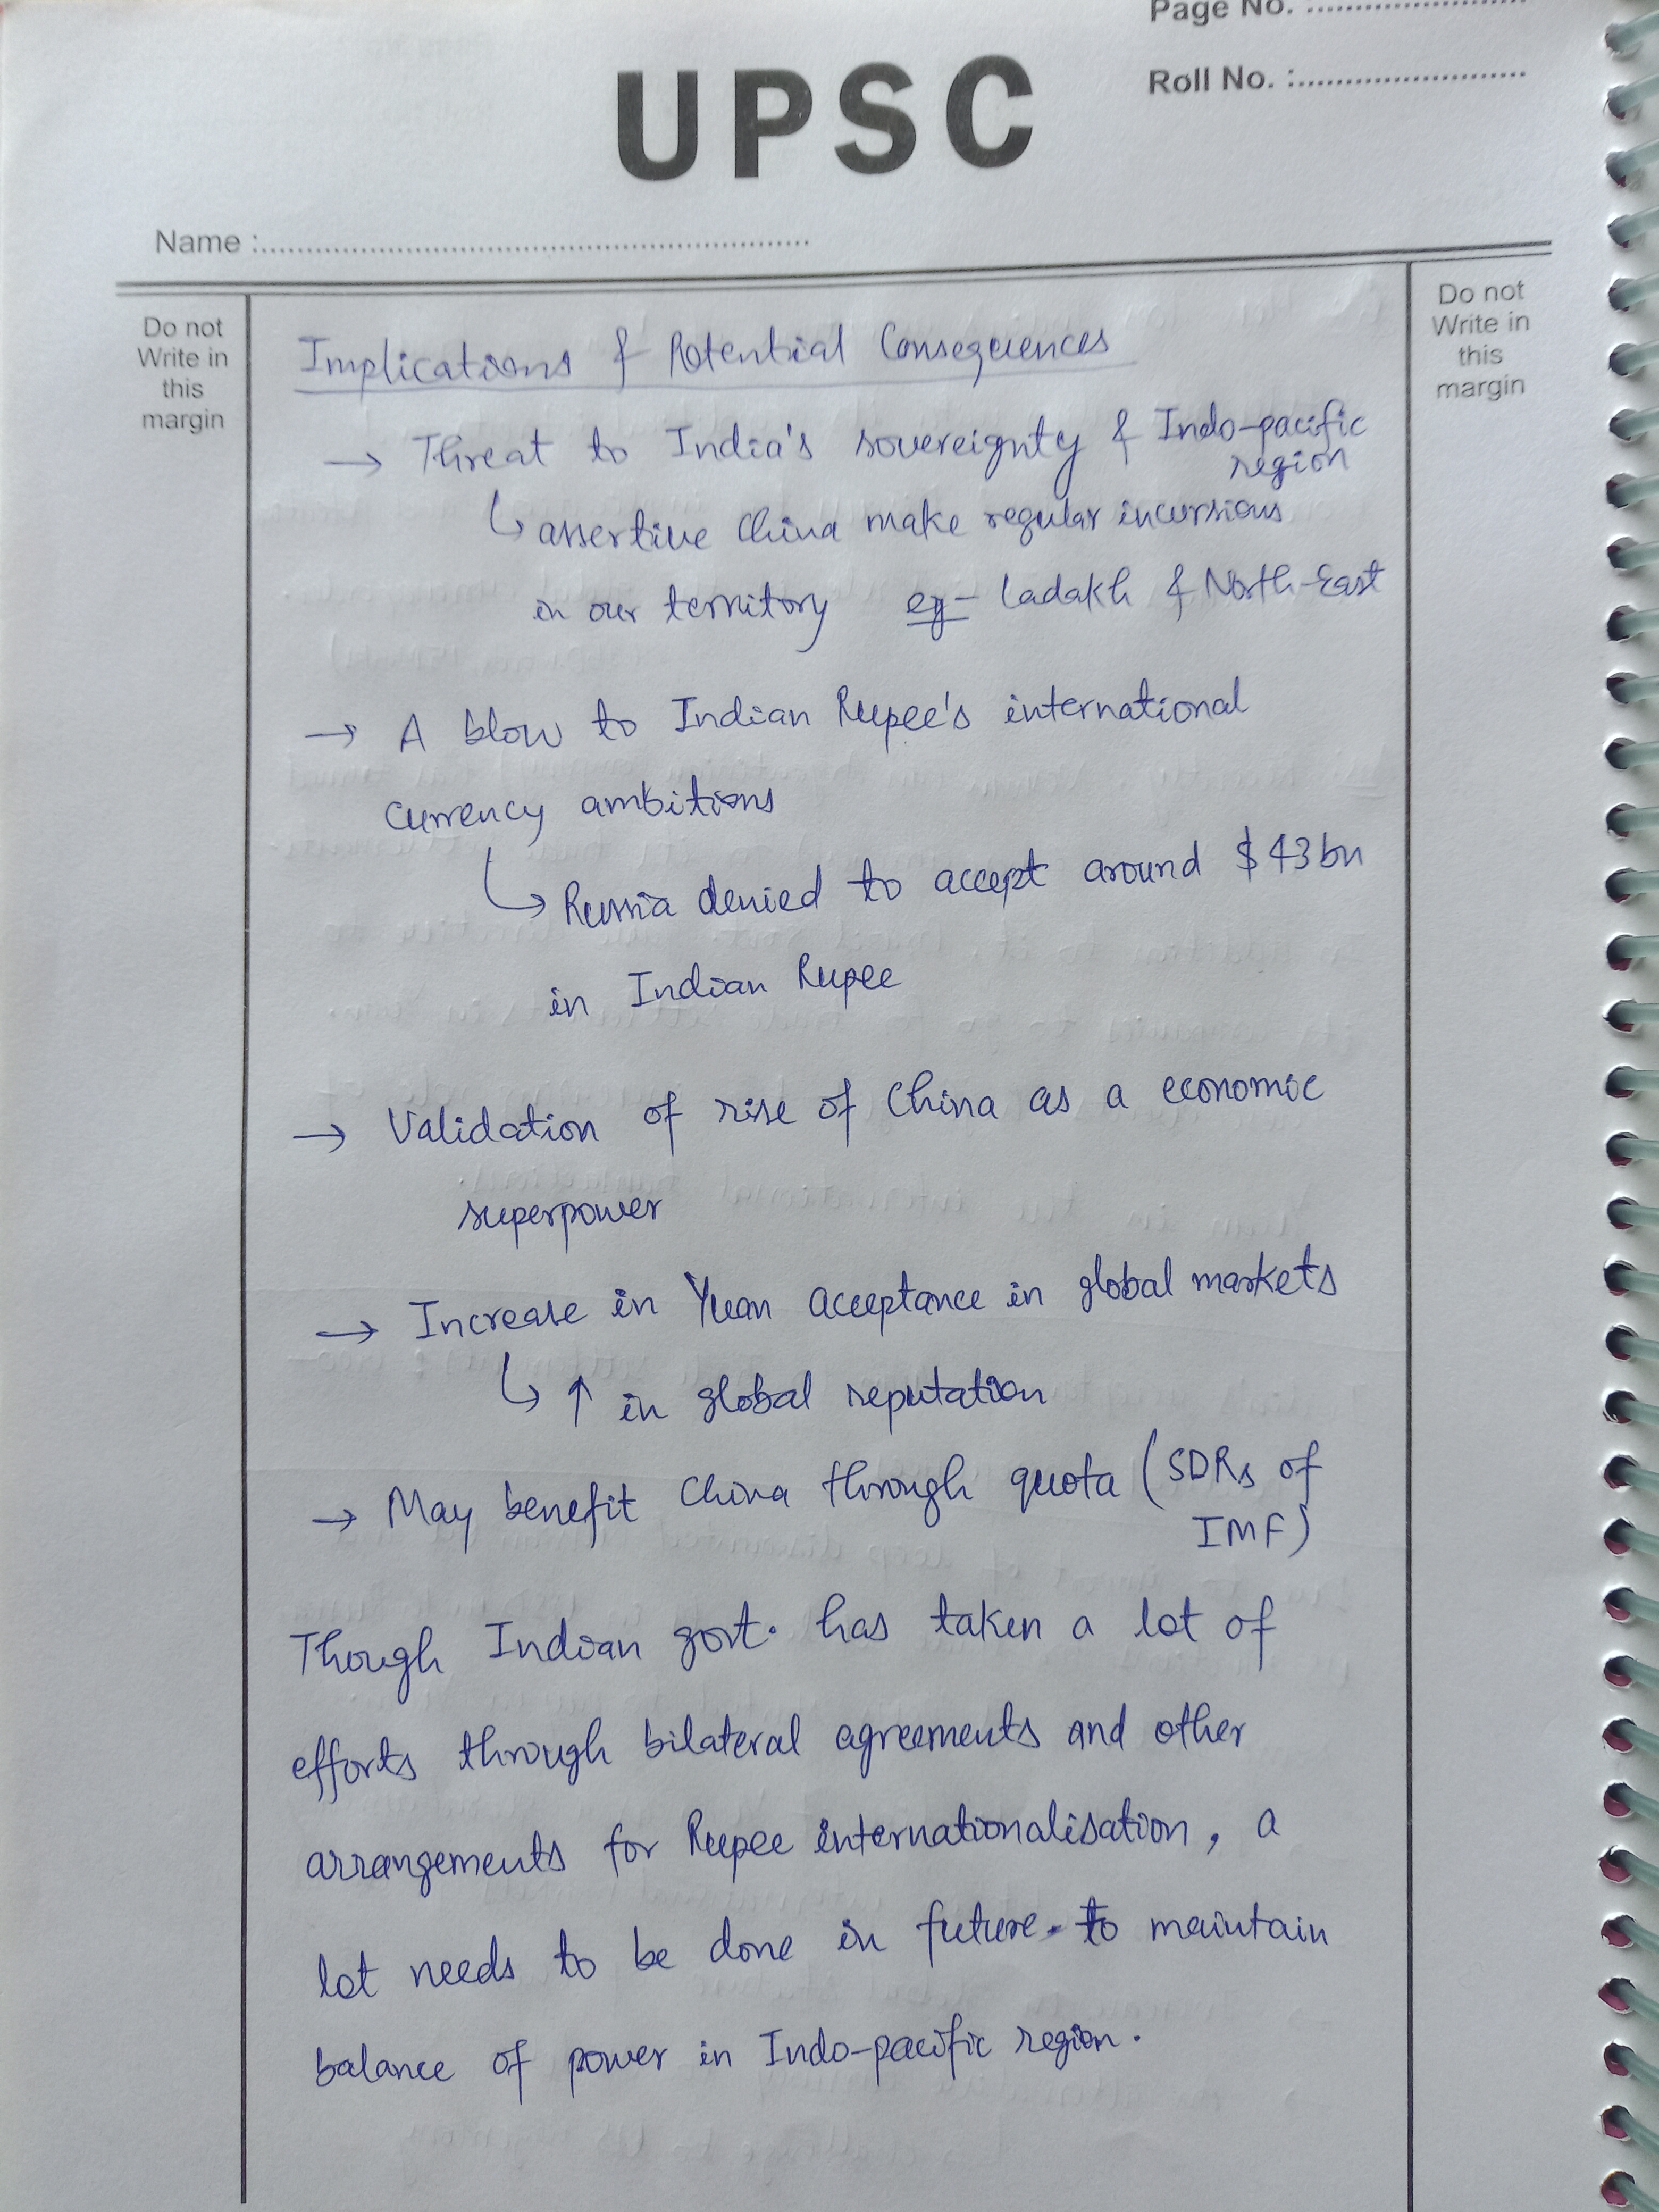 Page No. :
Roll No. :
UPSC
Name :
Do not
Write in
this
margin
Do not
Write in
this
margin
Implications & Potential Consequences
→ Threat to India's sovereignty & Indo-pacific
region
↳ assertive China make regular incursions
in our territory eg- Ladakh & North-East
→ A blow to Indian Rupee's international
currency ambitions
↳ Russia denied to accept around $43bn
in Indian Rupee
→ Validation of rise of China as a economic
superpower
→ Increase in Yuan acceptance in global markets
↳ ↑ in global reputation
→ May benefit China through quota (SDRs of
IMF)
Though Indian govt. has taken a lot of
efforts through bilateral agreements and other
arrangements for Rupee internationalisation, a
lot needs to be done in future. to maintain
balance of power in Indo-pacific region.